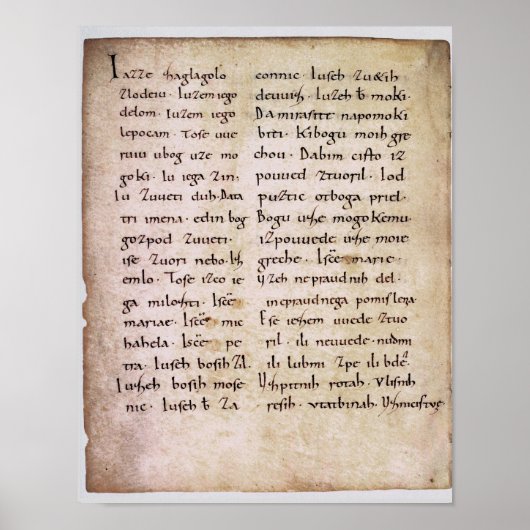 Iazze zaglagolo
zlodeiu · Iuzem iego
delom · Iuzem iego
lepocam · Tose uue
ruiu ubog uze mo
goki · Iu iega zin ·
Iu zuueti duh · Data
tri imena · edin bog
gozpod zuueti ·
ise zuori nebo · Iz
emlo · Tose izco ie
ga milozti · Iscē
mariae · Iscē mic
hahela · Iscē pe
tra · Iuseh bosih zil ·
Iuzeh bosih mose
nic · Iuseh ƀ za
connic · Iuseh zu&ih
deuuiz · Iuzeh ƀ moki ·
Da mirasite napomoki
biti · Kibogu moih gre
chou · Dabim cisto iz
pouued ztuoril · Iod
puztic otboga priel ·
Bogu uze mogokemu
izpouuede uze moie
greche · Iscē marie ·
uzeh nepraudnih del ·
inepraudnega pomislena
Ese iezem uuede ztuo
ril · ili neuuede · nudmi
ili lubmi zpe ili bde
Uzpitnih rotah · Ulisnih
resih · Utatbinah · Uznicistue